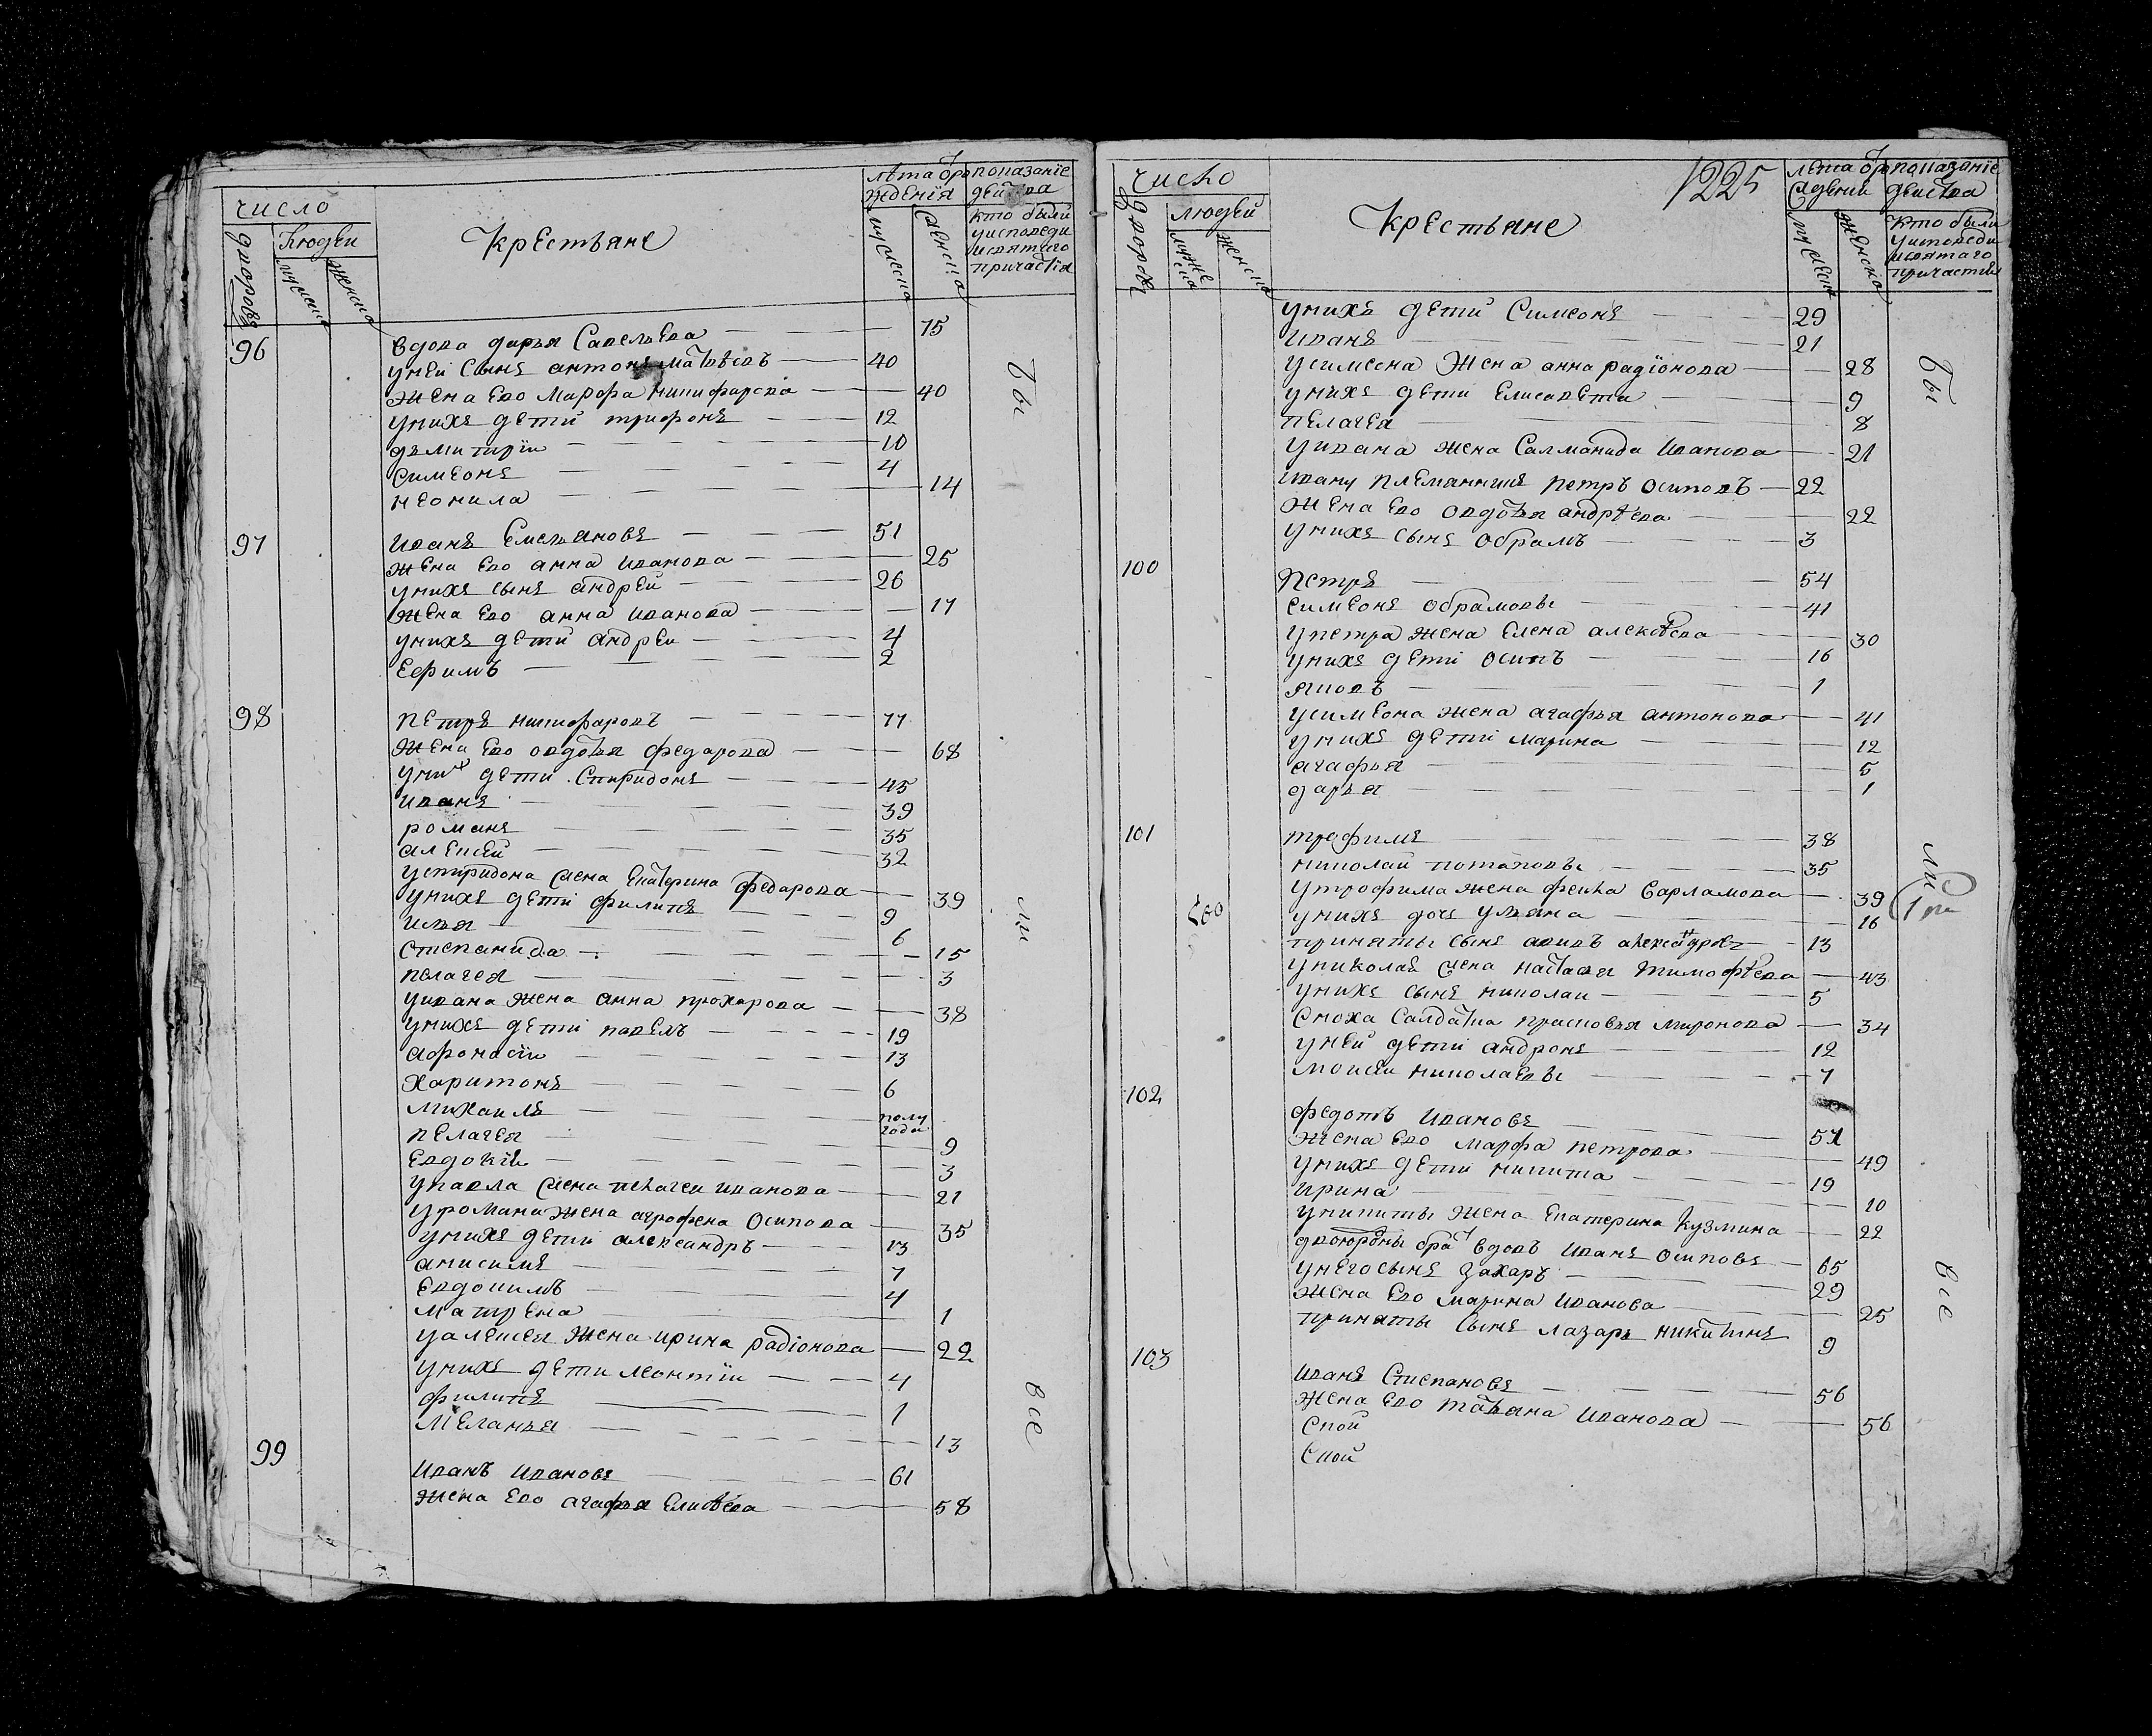 число
людеи
дворовъ
мужеска
женска
Крестьяне
лѣта ѿ ро
ждения
мужеска
женска
показание
действа
кто были
у исповеди
и святаго
причастия
96
вдова дарья Савельева — 75
у неи сынъ антонъ матвѣевъ — 40
жена ево марфа никифарова — 40
у нихъ дети трифонъ — 12
дьмитрїи — 10
симеонъ — 4
неонила — 14
97
иванъ Емельяновъ — 51
жена ево анна иванова — 25
у нихъ сынъ андреи — 26
жена ево анна иванова — 17
у нихъ дети андреи — 4
Ефимъ — 2
98
петръ никифаровъ — 77
жена ево овдотья федарова — 68
у них дети Спиридонъ — 45
иванъ — 39
романъ — 35
алексеи — 32
у спиридона жена Екатерина федарова — 39
у нихъ дети филипъ — 9
илья — 6
степанида — 15
пелагея — 3
у ивана жена анна прохарова — 38
у нихъ дети павелъ — 19
афонасїи — 13
харитонъ — 6
михаилъ — полу
года
пелагея — 9
Евдокия — 3
у павла жена пелагеи иванова — 21
у романа жена агрофена осипова — 35
у нихъ дети александръ — 13
анисимъ — 7
Евдокимъ — 4
матрена — 1
у алексея жена ирина радїонова — 22
у нихъ дети леонтїи — 4
филипъ — 1
меланья — 13
99
иванъ ивановъ — 61
жена ево агафья Елисѣева — 58
бы
ли
все
1225
число
людей
дворовъ
муже
ска
женска
Крестьяне
лѣта ѿ ро
ждении
мужеска
женска
показание
действа
кто были
у исповеди
и святаго
причастия
у нихъ дети Симеонъ — 29
иванъ — 21
у симеона жена анна радїонова — 28
у нихъ дети Елисавета — 9
пелагея — 8
у ивана жена Салманида иванова — 21
ивану племянникъ петръ осиповъ — 22
жена ево овдотья андрѣева — 22
у нихъ сынъ обрамъ — 3
100
петръ — 54
симеонъ обрамовы — 41
у петра жена Елена алексѣева — 30
у нихъ дети осипъ — 16
яковъ — 1
у симеона жена агафья антонова — 41
у нихъ дети марина — 12
агафья — 5
дарья — 1
101
трофимъ — 38
николаи потаповы — 35
у трофима жена фекла варламова — 39
у нихъ дочь ульяна — 16
приняты сынъ авивъ александровъ — 13
у николая жена настасья тимофѣева — 43
у нихъ сынъ николаи — 5
сноха салдатка прасковья миронова — 34
у неи дети андронъ — 12
моисеи николаевы — 7
102
федотъ ивановъ — 51
жена ево марфа петрова — 49
у нихъ дети никита — 19
ирина — 10
у никиты жена Екатерина кузмина — 22
двоюрдны брат вдовъ иванъ осиповъ — 65
у него сынъ захаръ — 29
жена ево марина иванова — 25
приняты сынъ лазарь никитинъ — 9
103
иванъ Степановъ — 56
жена ево татьяна иванова — 56
бы
ли
все